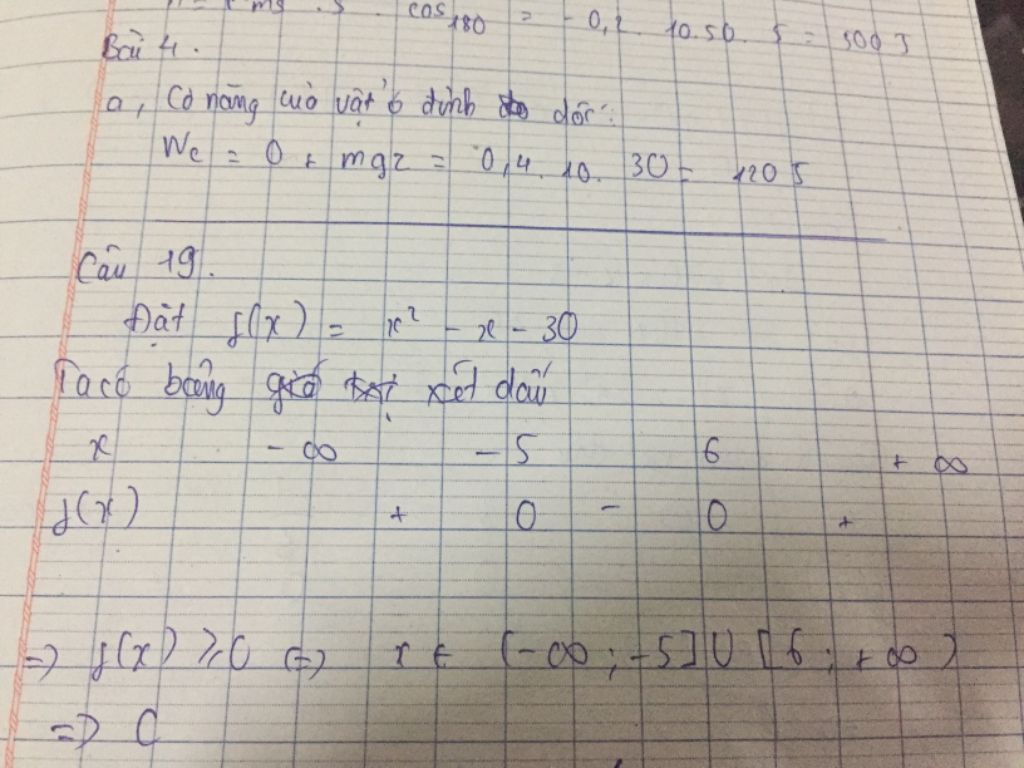 mg . S cos 180 = -0,2. 10.50. 5 = 500 J
Bài 4.
a, Cơ năng của vật ở đỉnh dốc:
Wc = 0 + mgz = 0,4. 10. 30 = 120 J
Câu 19.
Đặt f(x) = x² - x - 30
Ta có bảng xét dấu
x -∞ -5 6 +∞
f(x) + 0 - 0 +
=> f(x) ≥ 0 <=> x ∈ (-∞; -5] U [6; +∞)
=> C